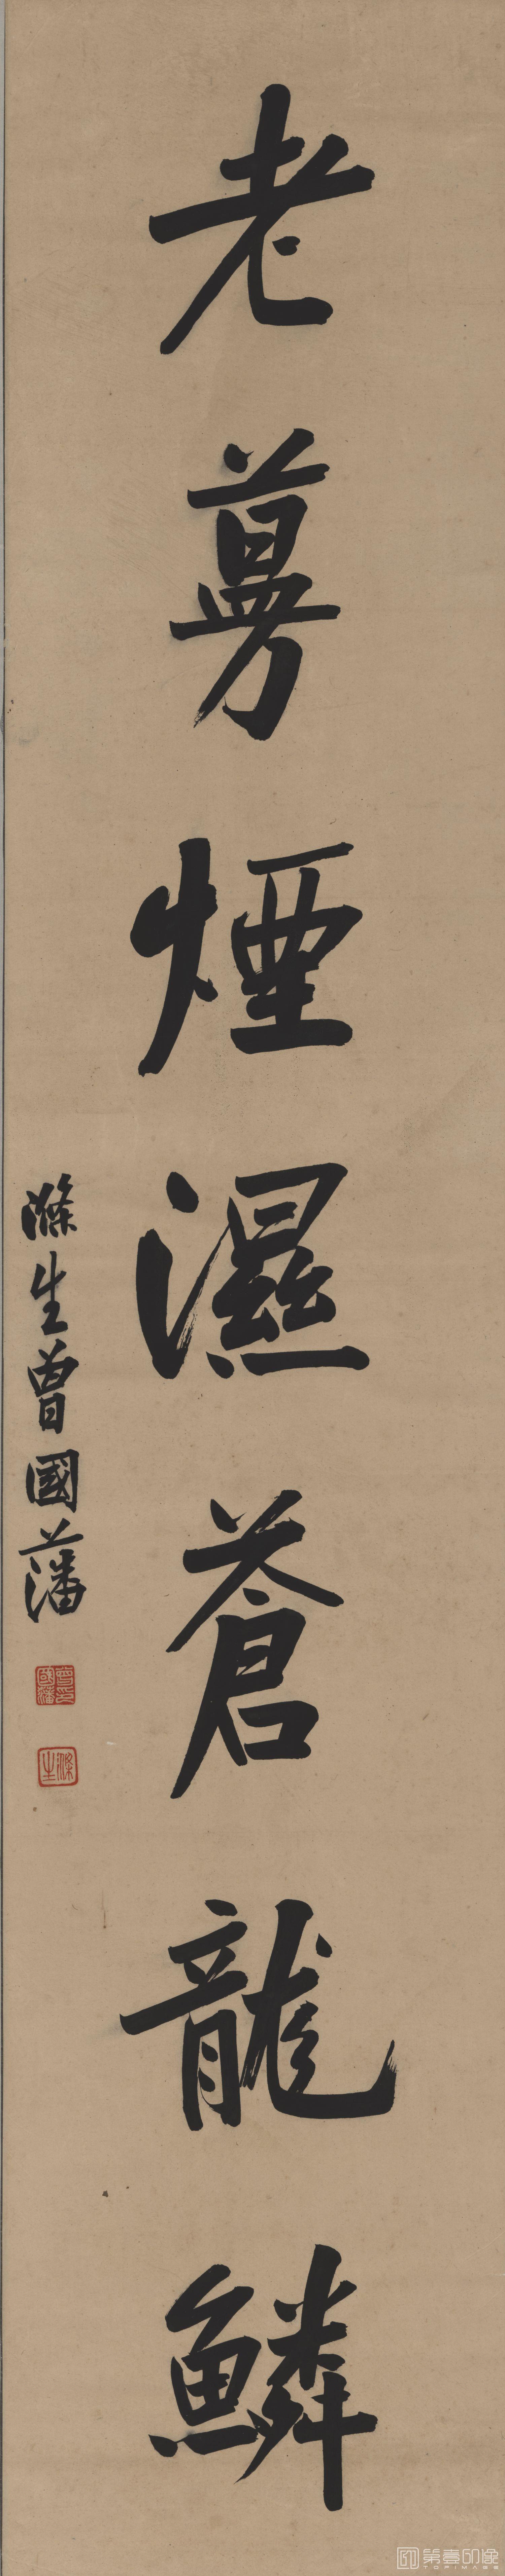 老蔓煙濕蒼龍鱗
滌生曾國藩
曾印國藩
滌生
第壹印像
TOPIMAGE